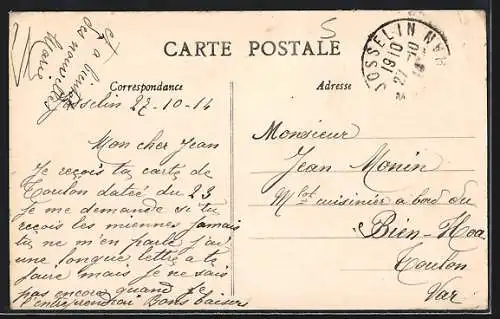 et a bientôt
des nouvelles
Marie
5
CARTE POSTALE
Correspondance
Adresse
JOSSELIN
19 10
27 -10
Josselin 27-10-14
Mon cher Jean
Je reçois ta carte de
Toulon datée du 23
Je me demande si tu
reçois les miennes jamais
tu ne m'en parle j'ai
une longue lettre à te
faire mais je ne sais
pas encore quand je
l'entreprendrai Bons baisers
Monsieur
Jean Monin
Mlot cuisinier a bord du
Bien-Hoa
Toulon
Var